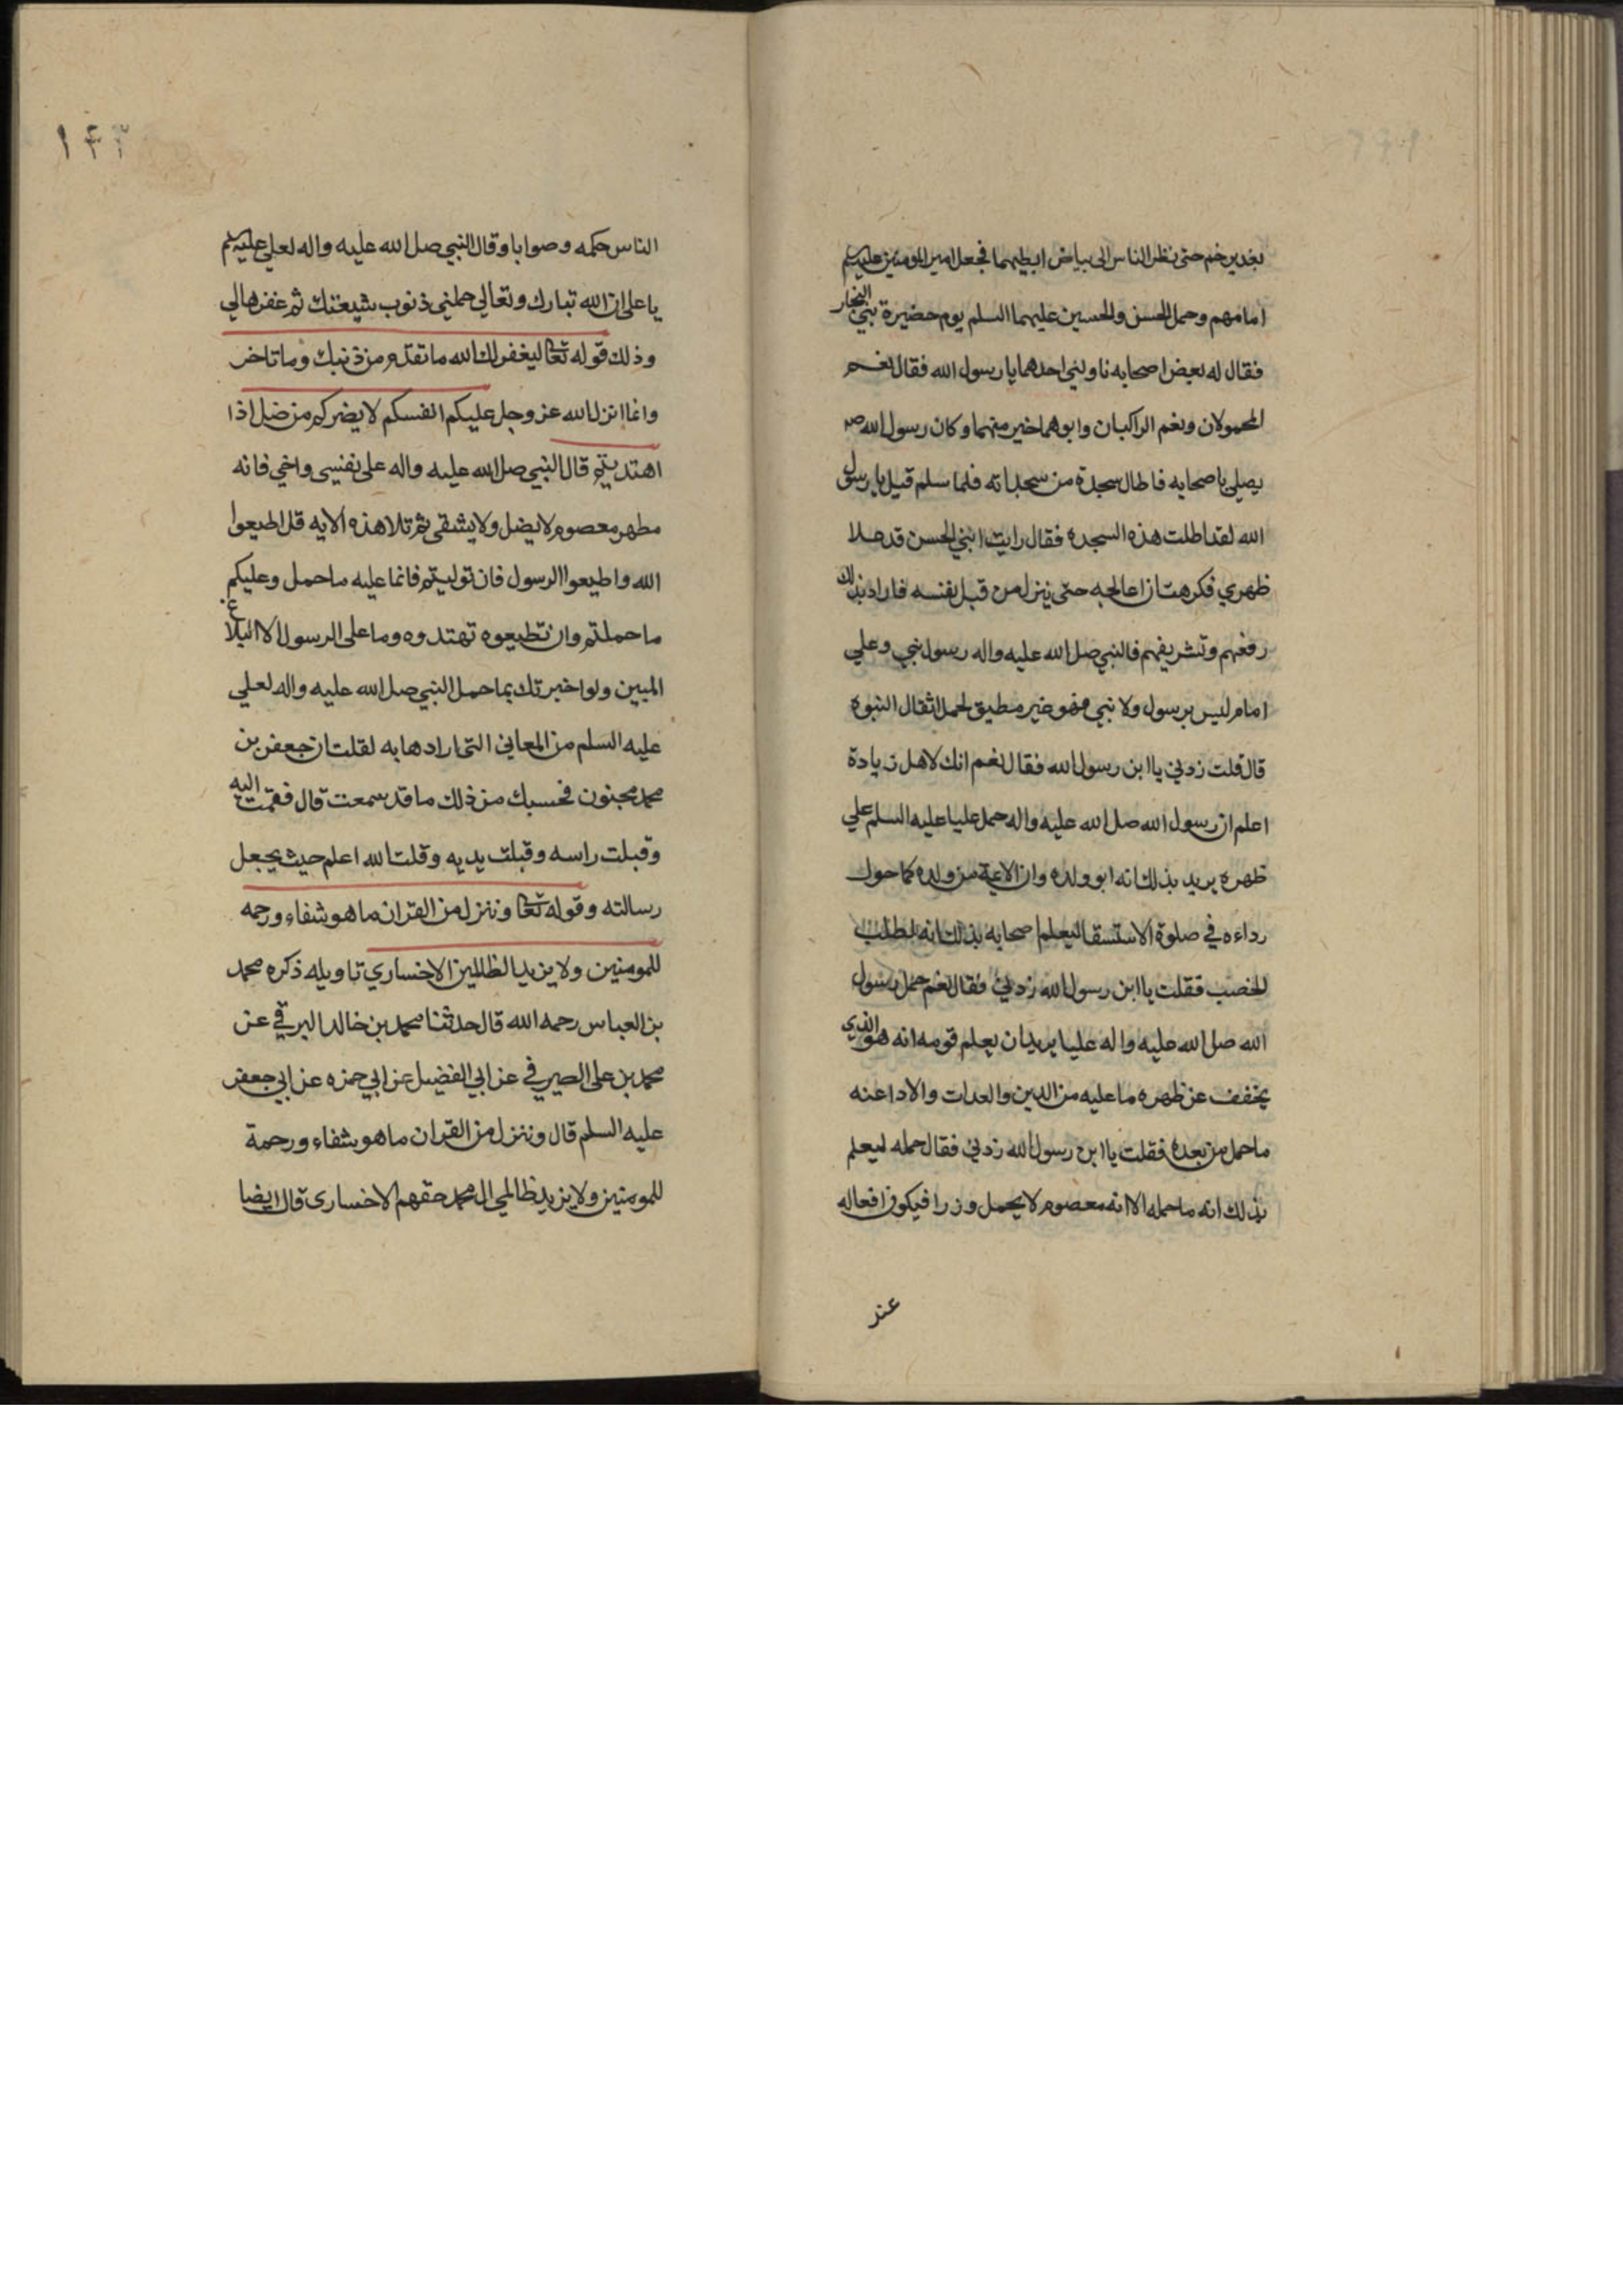 بغدير خم حتى نظر الناس الى بياض ابطيهما فجعل امير المومنين عليه السلم
امامهم وحمل الحسن والحسين عليهما السلم يوم حضيرة بني النجار
فقال له بعض اصحابه ناولني احدهما يا رسول الله فقال نعم
المحمولان ونعم الراكبان وابوهما خير منهما وكان رسول الله ص
يصلي باصحابه فاطال سجدة من سجداته فلما سلم قيل يا رسول
الله لقد اطلت هذه السجده فقال رايت ابني الحسن قد علا
ظهري فكرهت ان اعالجه حتى ينزل من قبل نفسه فاراد بذلك
رفعهم وتشريفهم فالنبي صل الله عليه واله رسول نبي وعلي
امام ليس برسول ولا نبي فهو غير مطيق لحمل اثقال النبوه
قال قلت زدني يا ابن رسول الله فقال نعم انك لاهل زيادة
اعلم ان رسول الله صل الله عليه واله حمل عليا عليه السلم علي
ظهره يريد بذلك انه ابو ولده وان الايمة من ولده كما حول
رداءه في صلوة الاستسقا ليعلم اصحابه بذلك انه لطلب
الخصب فقلت يا ابن رسول الله زدني فقال نعم حمل رسول
الله صل الله عليه واله عليا يريد ان يعلم قومه انه هو الذي
يخفف عن ظهره ما عليه من الدين والعدات والادا عنه
ما حمل من بعده فقلت يا ابن رسول الله زدني فقال حمله ليعلم
بذلك انه ما حمله الا انه معصوم لا يحمل وزرا فيكون افعاله
عند
١٤٣
الناس حكمه وصوابا وقال النبي صل الله عليه واله لعلي عليه السلم
يا علي ان الله تبارك وتعالي حملني ذنوب شيعتك ثم غفرها لي
وذلك قوله تعا ليغفر لك الله ما تقدم من ذنبك وما تاخر
وانما انزل الله عز وجل عليكم انفسكم لا يضركم من ضل اذا
اهتديتم قال النبي صل الله عليه واله علي نفسي واخي فانه
مطهر معصوم لا يضل ولا يشقى ثم تلا هذه الايه قل اطيعوا
الله واطيعوا الرسول فان توليتم فانما عليه ما حمل وعليكم
ما حملتم وان تطيعوه تهتدوه وما على الرسول الا البلاغ
المبين ولو اخبرتك بما حمل النبي صل الله عليه واله لعلي
عليه السلم من المعاني التي ارادها به لقلت ان جعفر بن
محمد مجنون فحسبك من ذلك ما قد سمعت قال فقمت اليه
وقبلت راسه وقبلت يديه وقلت الله اعلم حيث يجعل
رسالته وقوله تعا وننزل من القران ما هو شفاء ورحمه
للمومنين ولا يزيد الظالمين الا خسارا تاويله ذكره محمد
بن العباس رحمه الله قال حدثنا محمد بن خالد البرقي عن
محمد بن علي الصيرفي عن ابي الفضيل عن ابي حمزه عن ابي جعفر
عليه السلم قال وننزل من القران ما هو شفاء ورحمة
للمومنين ولا يزيد ظالمي ال محمد حقهم الا خسارى قال ايضا